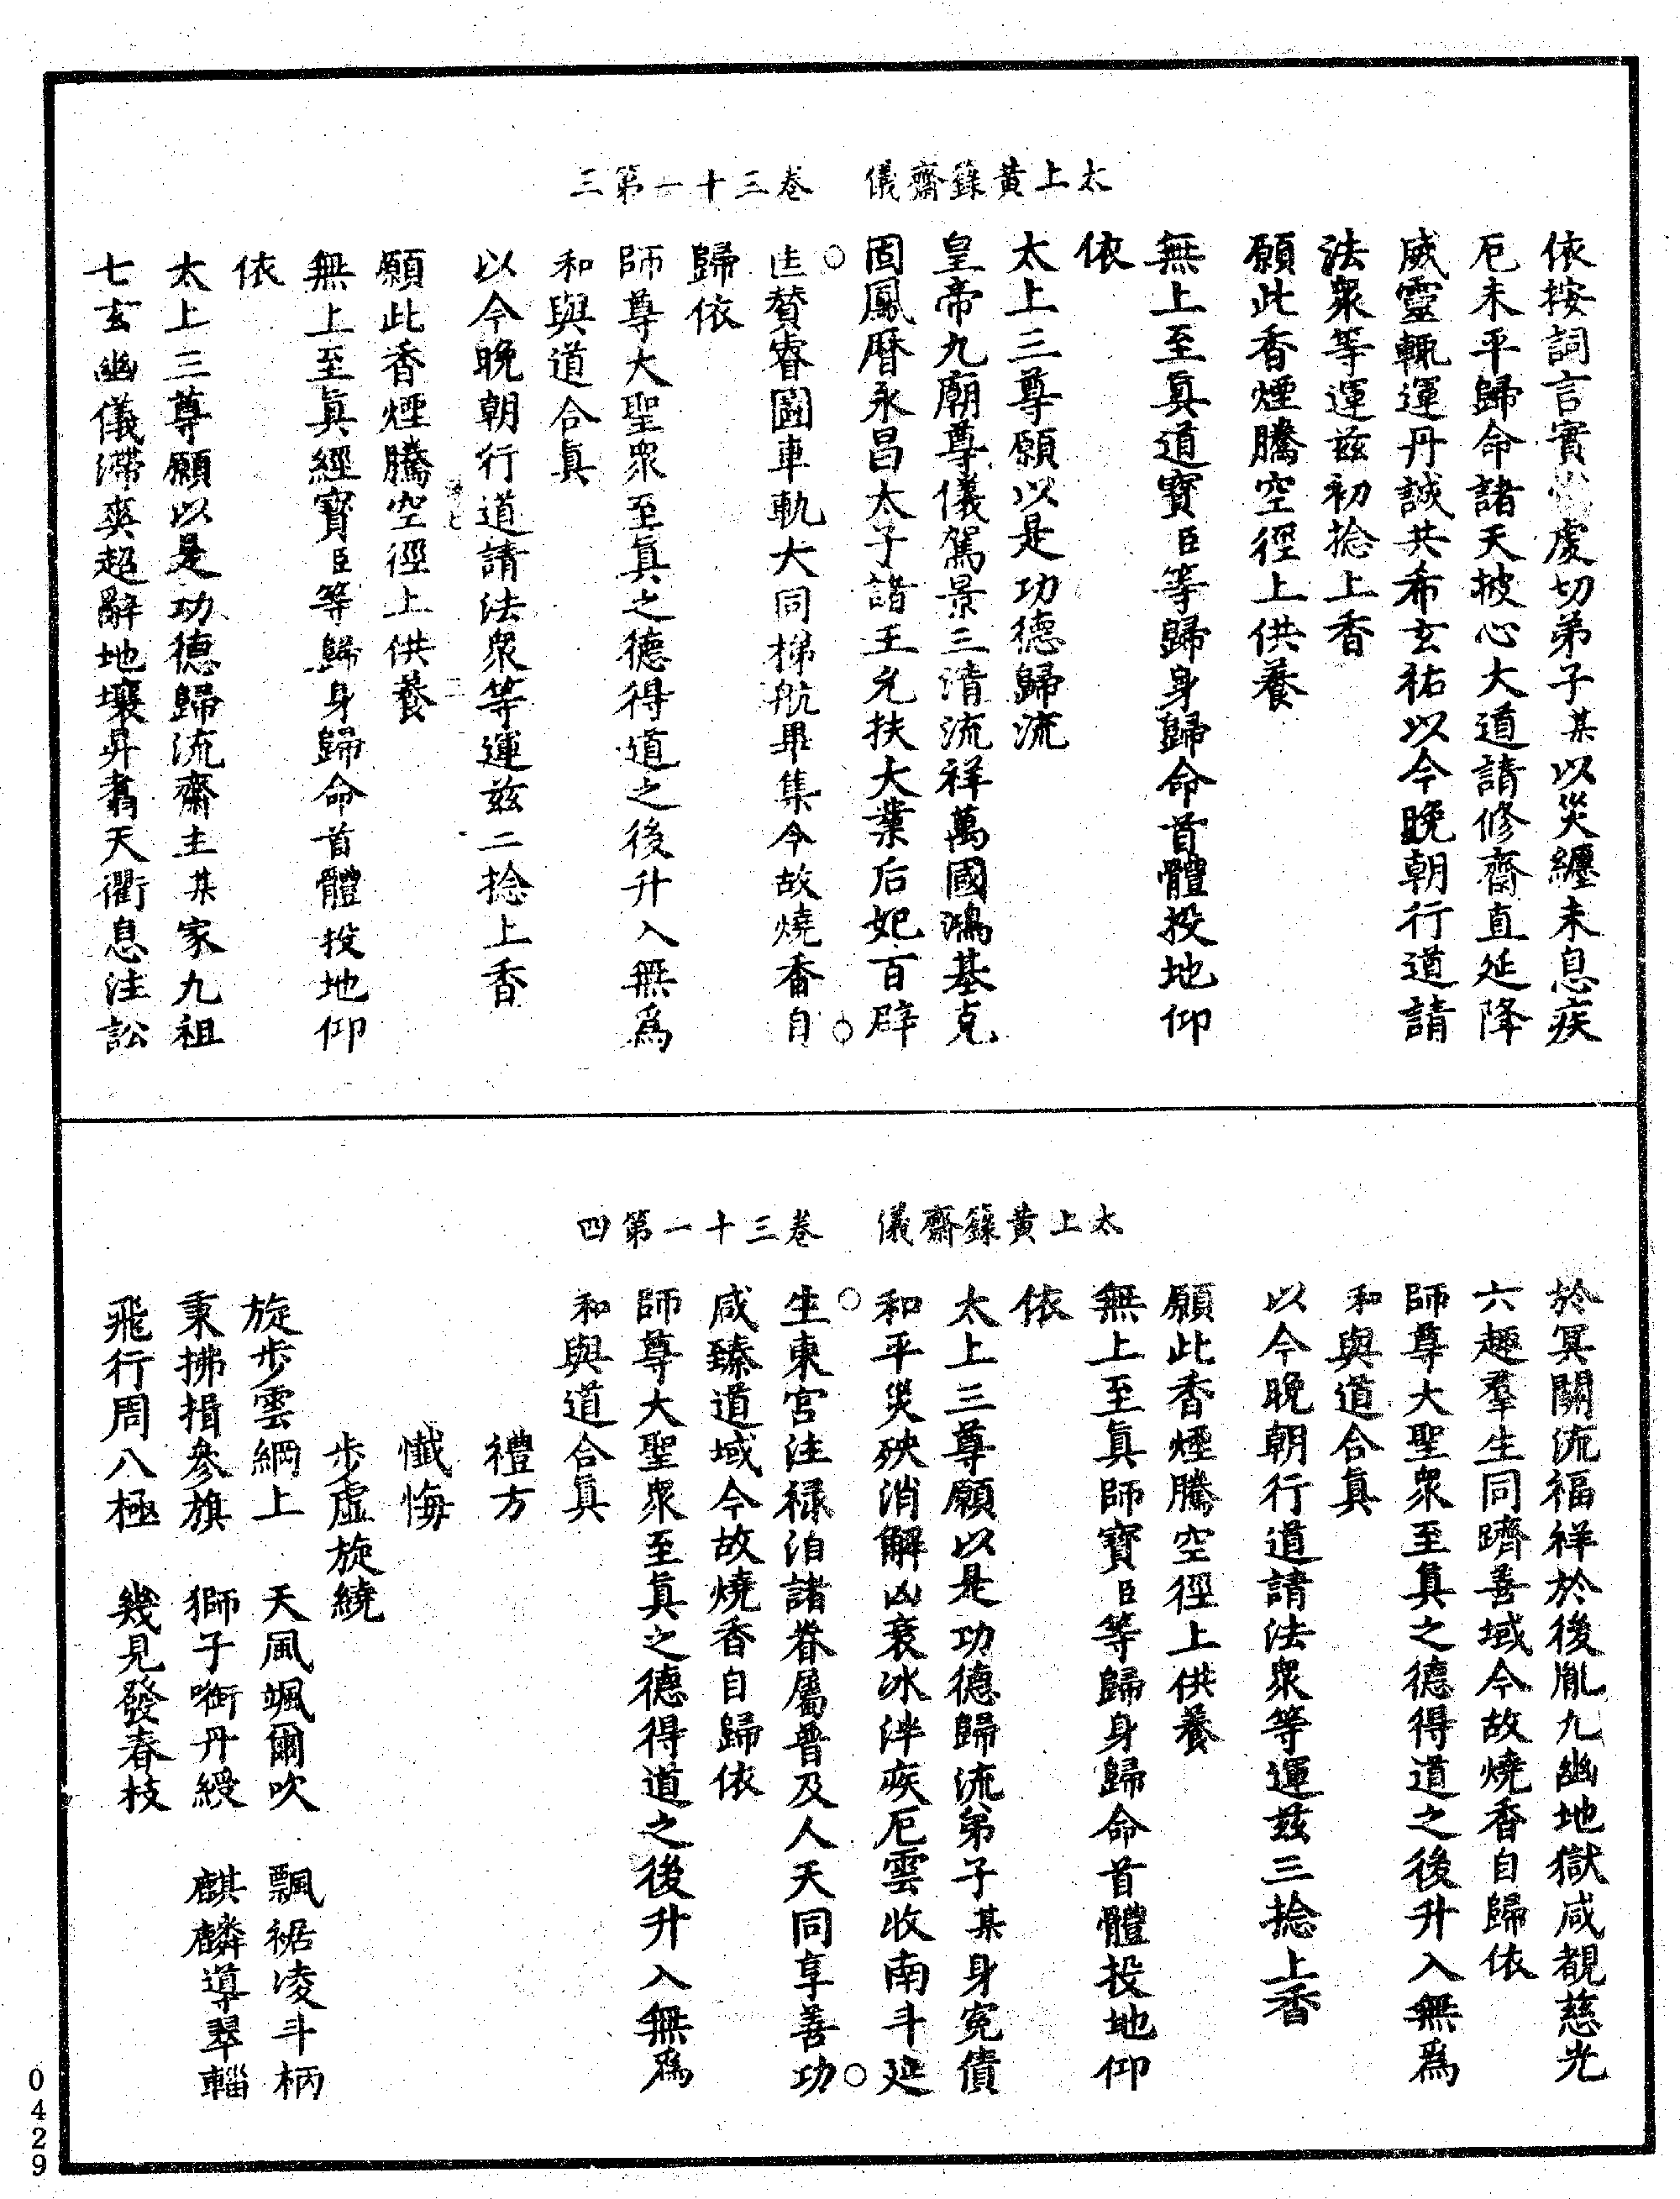 太上黃籙齋儀　卷三十一第三
依按詞言實當虔切弟子某以災纏未息疾
厄未平歸命諸天披心大道請修齋直延降
威靈輒運丹誠共希玄祐以今晚朝行道請
法衆等運茲初捻上香
願此香煙騰空徑上供養
無上至眞道寶臣等歸身歸命首體投地仰
依
太上三尊願以是功德歸流
皇帝九廟尊儀駕景三清流祥萬國鴻基克
固鳳曆永昌太子諸王允扶大業后妃百辟
匡贊睿圖車軌大同梯航畢集今故燒香自
歸依
師尊大聖衆至眞之德得道之後升入無爲
和與道合眞
以今晚朝行道請法衆等運茲二捻上香
願此香煙騰空徑上供養
無上至眞經寶臣等歸身歸命首體投地仰
依
太上三尊願以是功德歸流齋主某家九祖
七玄幽儀滯爽超辭地壤昇翥天衢息注訟
太上黃籙齋儀　卷三十一第四
於冥關流福祥於後胤九幽地獄咸覩慈光
六趣羣生同躋善域今故燒香自歸依
師尊大聖衆至眞之德得道之後升入無爲
和與道合眞
以今晚朝行道請法衆等運茲三捻上香
願此香煙騰空徑上供養
無上至眞師寶臣等歸身歸命首體投地仰
依
太上三尊願以是功德歸流弟子某身寃債
和平災殃消解凶衰冰泮疾厄雲收南斗延
生東宮注祿洎諸眷屬普及人天同享善功
咸臻道域今故燒香自歸依
師尊大聖衆至眞之德得道之後升入無爲
和與道合眞
禮方
懺悔
步虛旋繞
旋步雲綱上　天風颯爾吹　飄裾凌斗柄
秉拂揖參旗　獅子啣丹綬　麒麟導翠輜
飛行周八極　幾見發春枝
0429